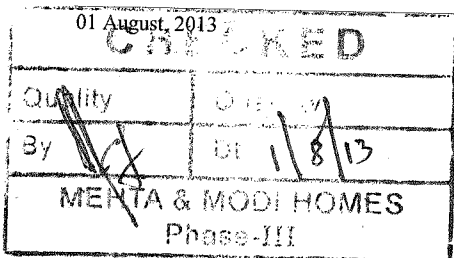 01 August, 2013
CHECKED
Quality
By Dt 1/8/13
MEHTA & MODI HOMES
Phase-III